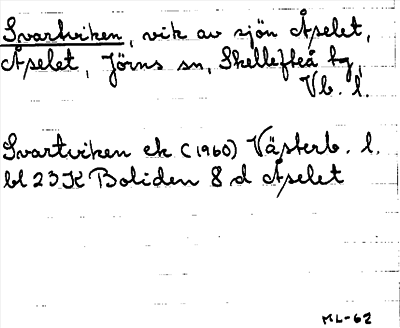 Svartviken, vik av sjön Åselet,
Åselet, Jörns sn, Skellefteå tg,
Vb. l.
Svartviken ek (1960) Västerb. l.
bl 23K Boliden 8 d Åselet
ML-62